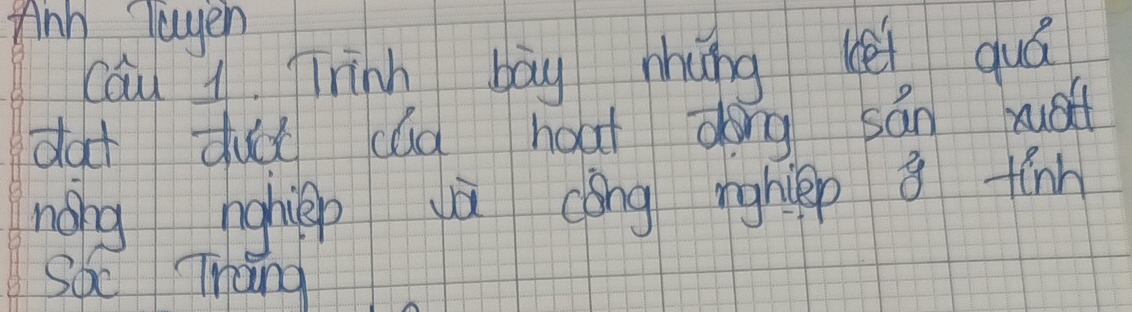 Ánh Tuyền
Câu 1. Trình bày những kết quả
đạt được của hoạt động sản xuất
nông nghiệp và công nghiệp ở tỉnh
Sóc Trăng